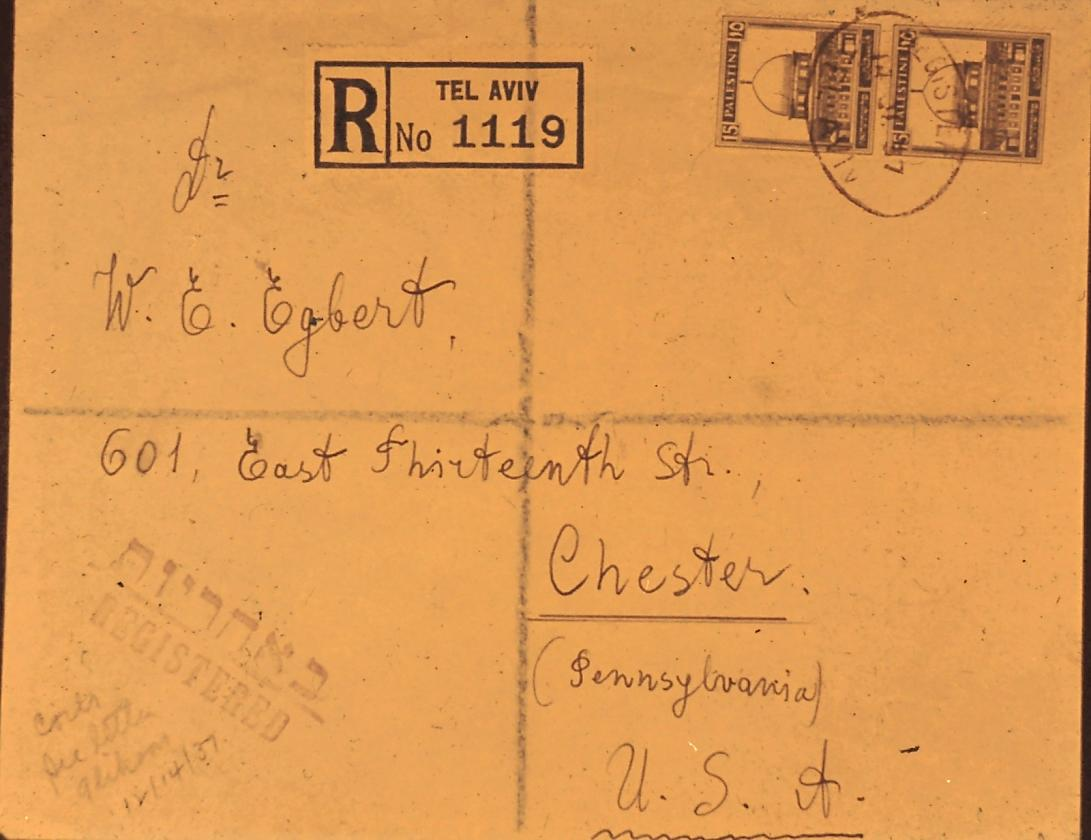 R TEL AVIV
No 1119
PALESTINE
15
PALESTINE
15
REGISTE
Dr
W. E. Egbert,
601, East Thirteenth Str.,
Chester.
(Pennsylvania)
U. S. A.
באחריות
REGISTERED
see letter
12/14/37